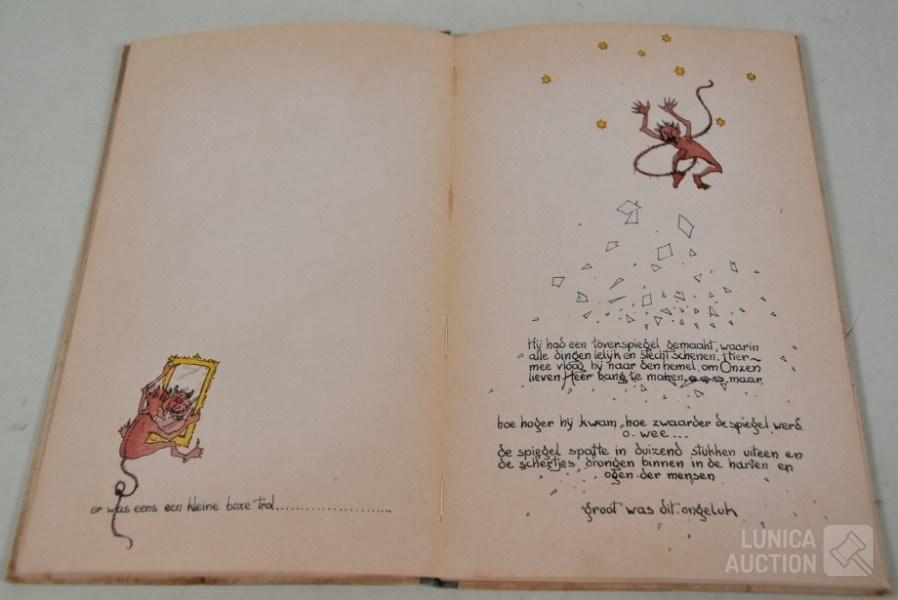 er was eens een kleine boze trol......................
Hij had een toverspiegel gemaakt, waarin
alle dingen lelijk en slecht schenen. Hier~
mee vloog hij naar den hemel, om Onzen
lieven Heer bang te maken, maar
hoe hoger hij kwam, hoe zwaarder de spiegel werd
o. wee...
de spiegel spatte in duizend stukken uiteen en
de scherfjes drongen binnen in de harten en
ogen der mensen
groot was dit ongeluk
LUNICA
AUCTION